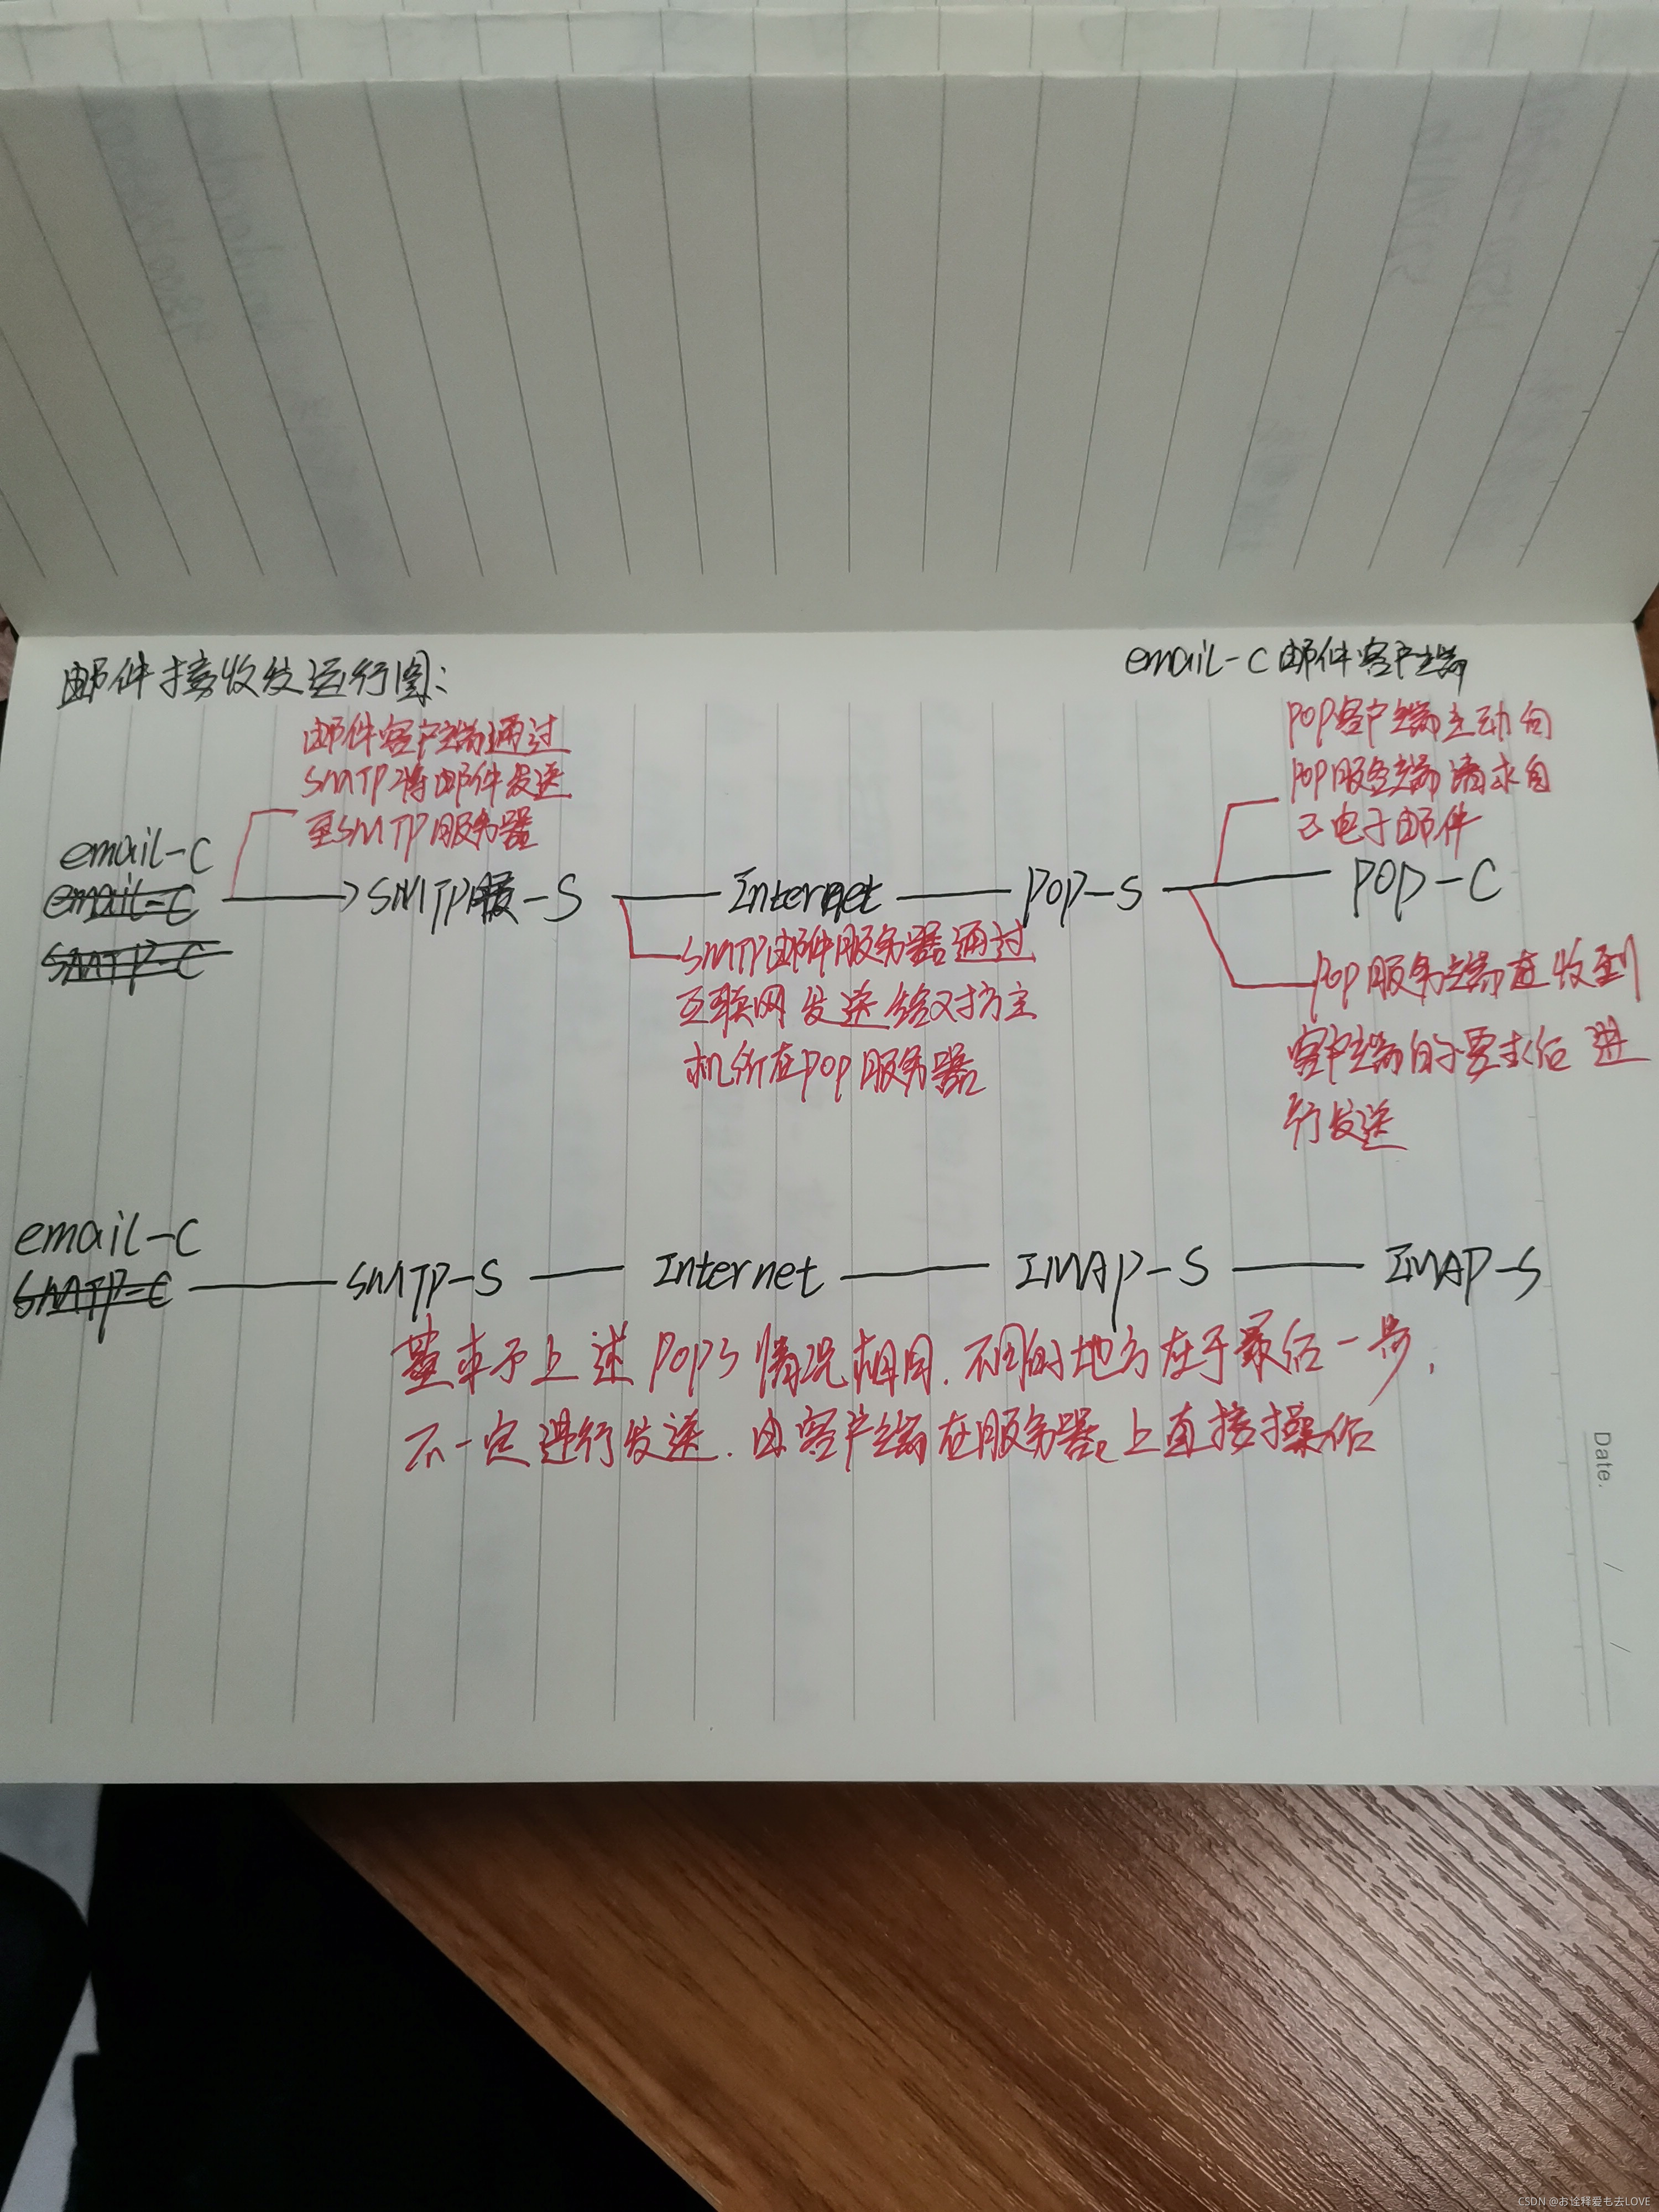 邮件接收发运行图:
email-C 邮件客户端
邮件客户端通过
SMTP将邮件发送
至SMTP服务器
POP客户端主动向
POP服务端请求自
己电子邮件
email-C
email-C
SMTP-C
SMTP服-S
Internet
POP-S
POP-C
SMTP邮件服务器通过
互联网发送给对方主
机所在POP服务器
POP服务端在收到
客户端的要求后进
行发送
email-C
SMTP-C
SMTP-S
Internet
IMAP-S
IMAP-S
基本于上述POP3情况相同.不同的地方在于最后一步,
不一定进行发送.由客户端在服务器上直接操作
Date. / /
CSDN @お诠释爱も去LOVE